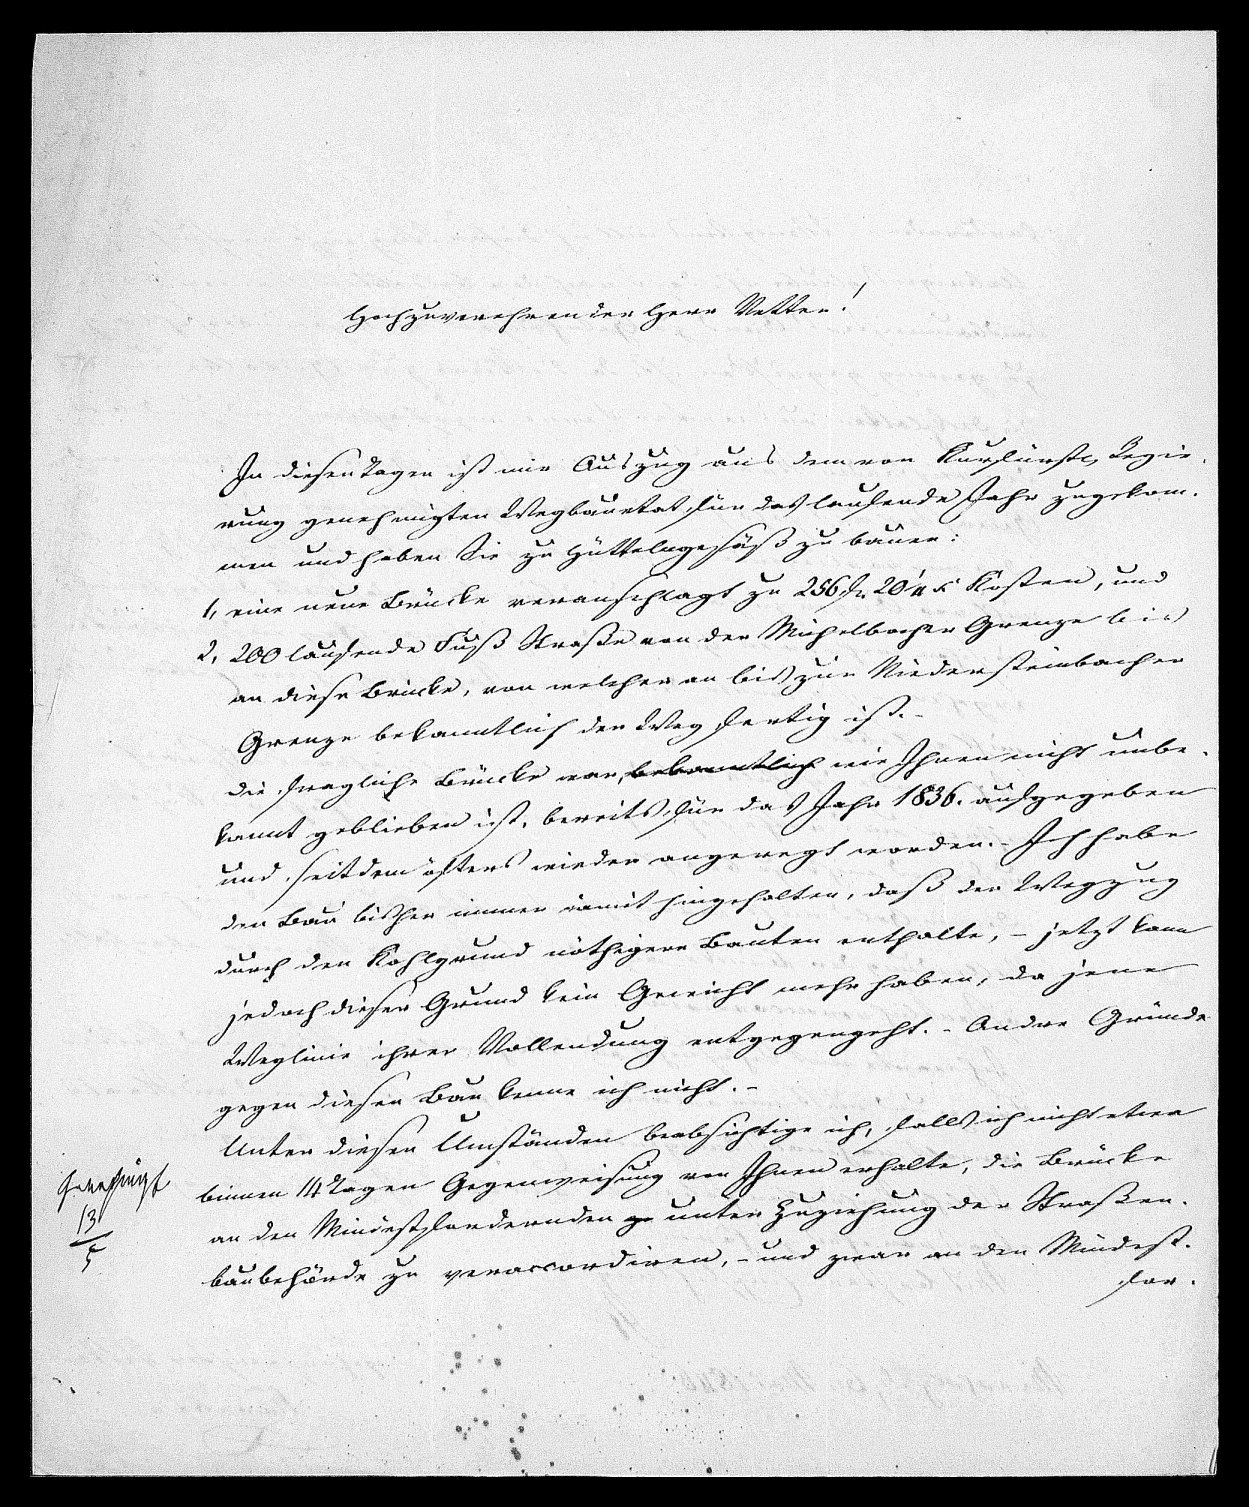 Hochzuverehrender Herr Vetter!
In diesen Tagen ist mir Auszug aus dem von Kurfürstl. Regie-
rung genehmigten Wegbauetat für das laufende Jahr zugekom-
men und haben Sie zu Hüttelngesäß zu bauen:
1, eine neue Brücke veranschlagt zu 256 fl. 20 Kosten, und
2, 200 laufende Fuß Straße von der Michelbacher Grenze bis
an diese Brücke, von welcher an bis zur Niedersteinbacher
Grenze bekanntlich der Weg fertig ist. -
die fragliche Brücke war, bekanntlich wie Ihnen nicht unbe-
kannt geblieben ist, bereits für das Jahr 1836. aufgegeben
und seitdem öfters wieder angeregt worden. - Ich habe
den Bau bisher immer damit hingehalten, daß der Wegzug
durch den Kohlgrund nöthigere Bauten enthalte, - jetzt kann
jedoch dieser Grund kein Gewicht mehr haben, da jene
Weglinie ihrer Vollendung entgegengeht. - Andre Gründe
gegen diesen Bau kenne ich nicht. -
Unter diesen Umständen beabsichtige ich, falls ich nicht etwa
binnen 14 Tagen Gegenweisung von Ihnen erhalte, die Brücke
an den Mindestfordernden unter Zuziehung der Straßen-
baubehörde zu veraccordiren, - und zwar an den Mindest-
for-
Genehmigt
13
5